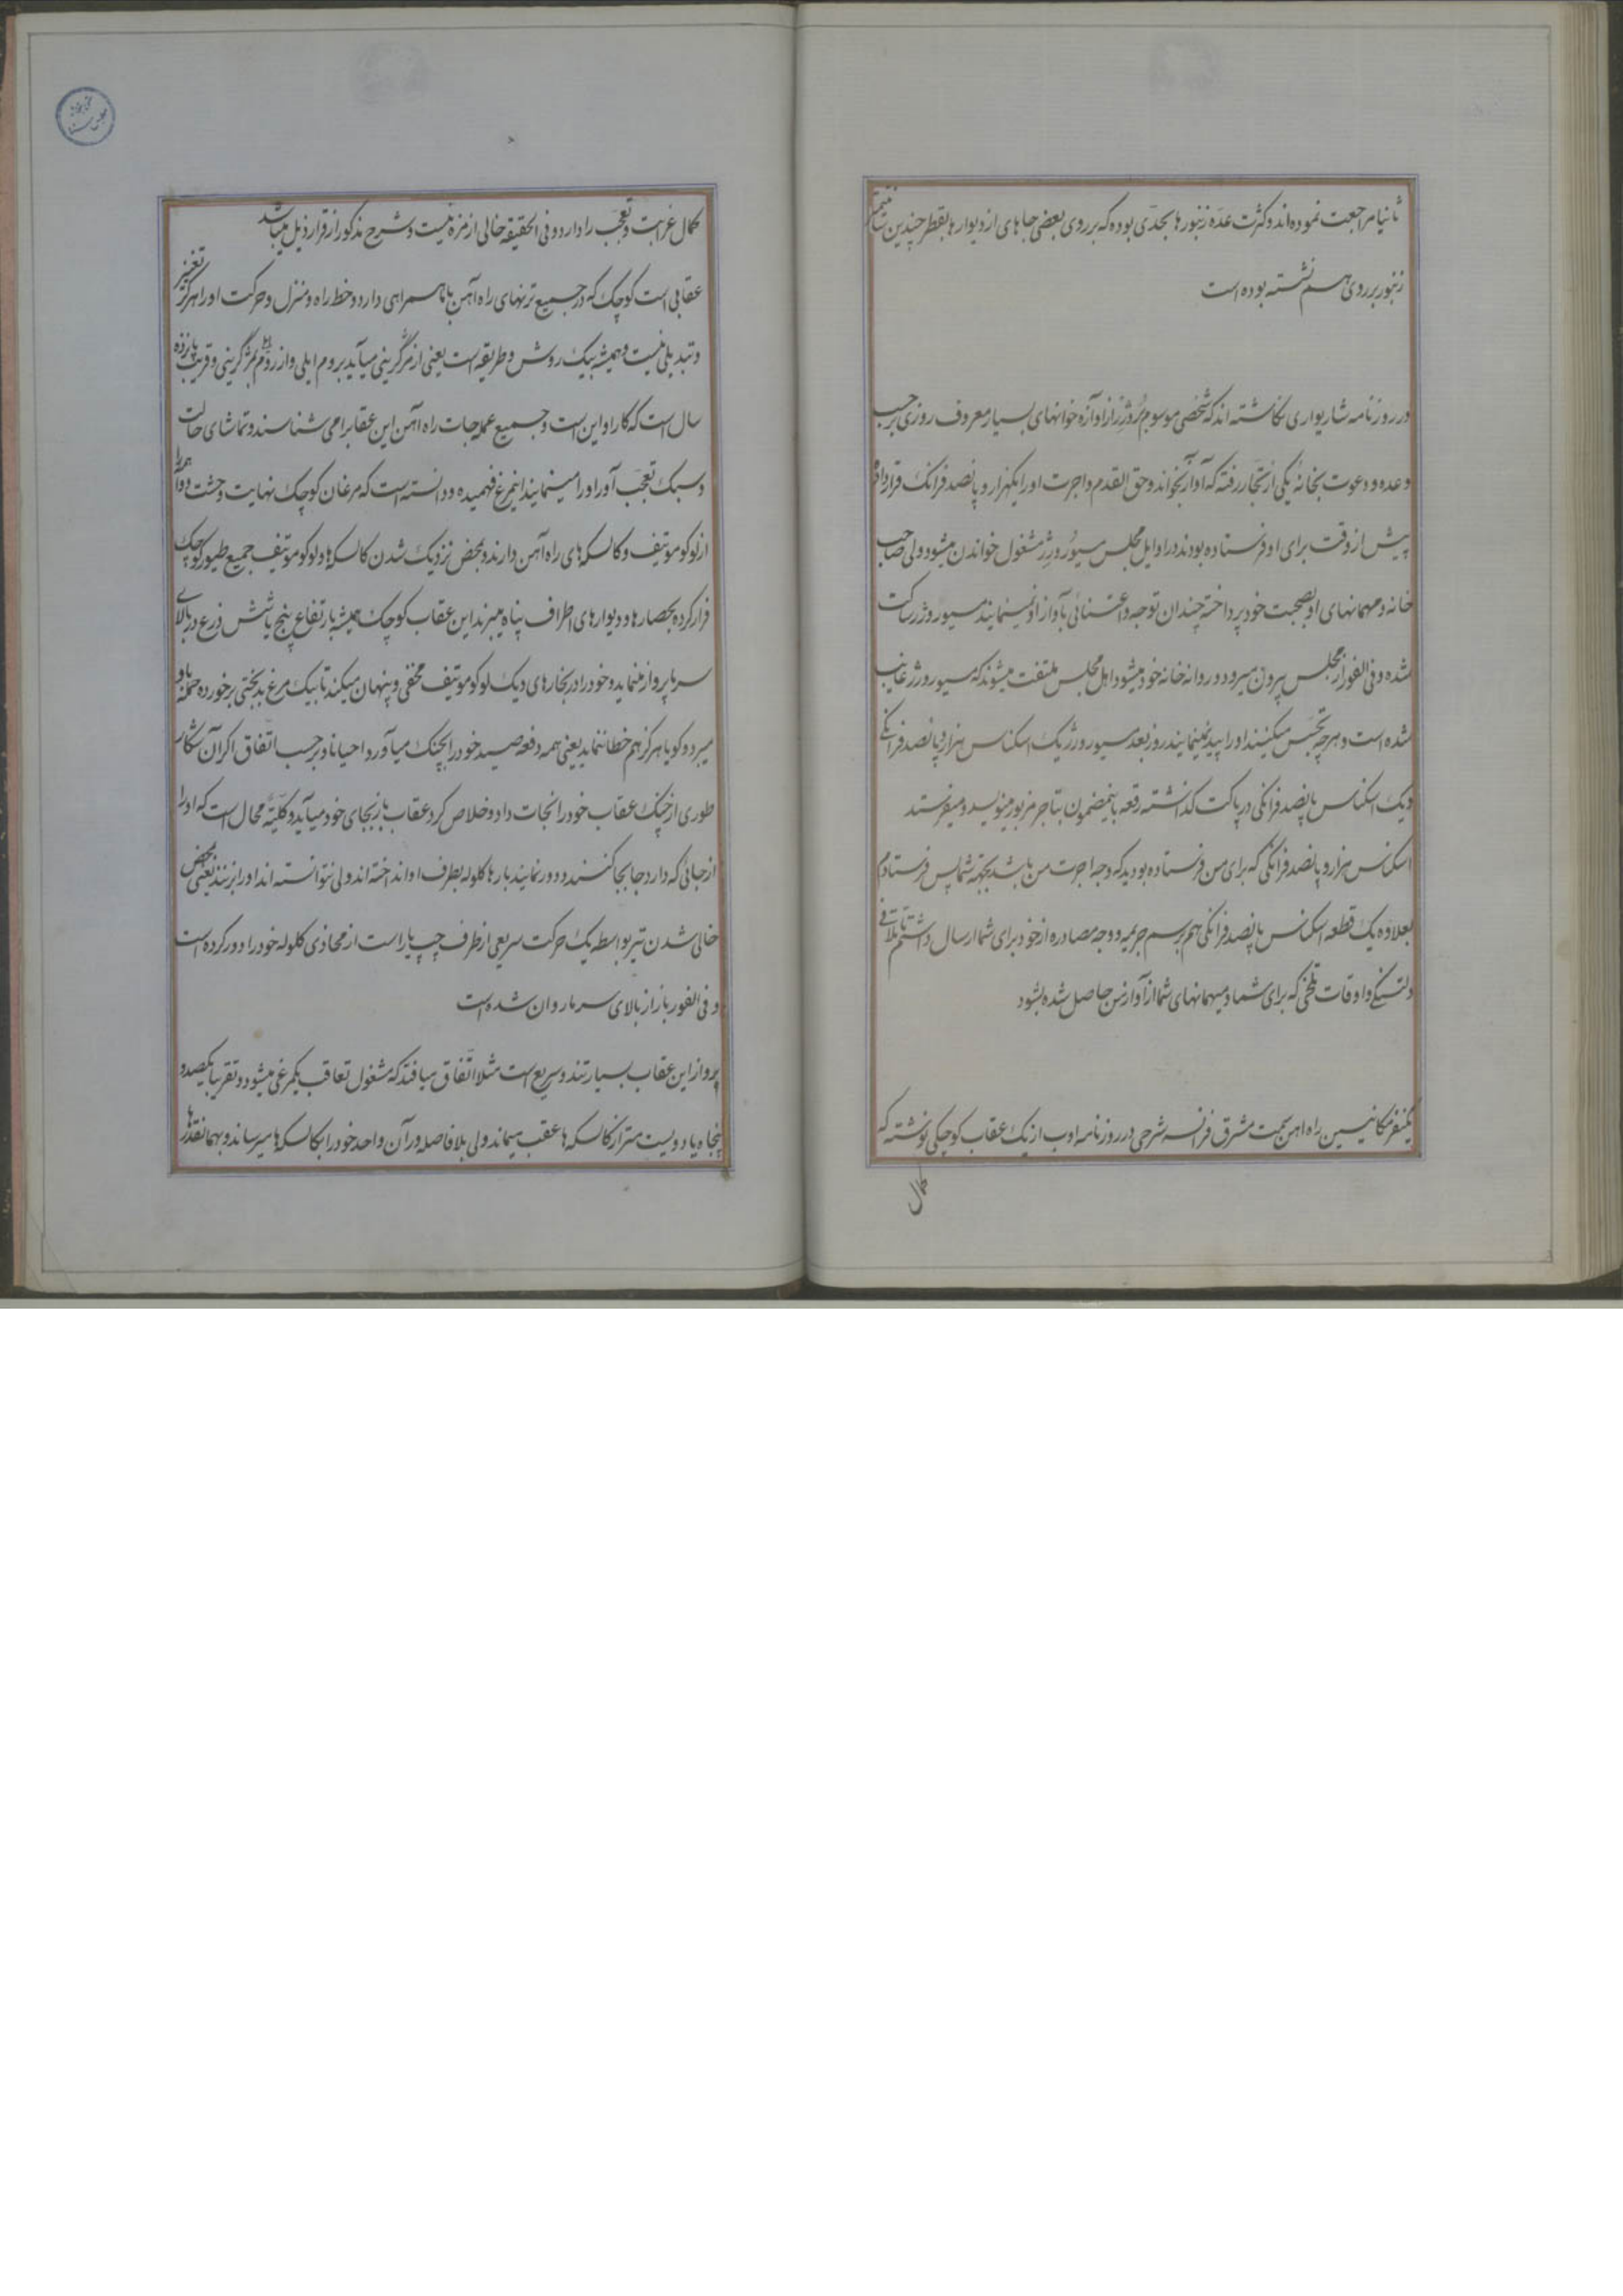 ثانیا مراجعت نموده‌اند و کثرت عده زنبورها بحدّی بوده که بر روی بعضی جاهای از دیوارها بقطر چندین سانتیمتر
زنبور بر روی هم نشسته بوده است
در روزنامه شاریواری نگاشته‌اند که شخصی موسوم برُوژِر از آوازه خوانهای بسیار معروف روزی برحسب
وعده و دعوت بخانه یکی از تجّار رفته که آواز بخواند و حق القدم و اجرت او را یکهزار و پانصد فرانک قرار داده
پیش از وقت برای او فرستاده بودند در اوایل مجلس مسیو روژر مشغول خواندن میشود ولی صاحب
خانه و مهمانهای او بصحبت خود پرداخته چندان توجه و اعتنائی بآواز او نمینمایند مسیو روژر ساکت
شده و فی الفور از مجلس بیرون میرود و روانه خانه خود میشود اهل مجلس ملتفت میشوند که مسیو روژر غایب
شده است و هر چه تجسّس میکنند او را پیدا نمینمایند روز بعد مسیو روژر یک اسکناس هزار و پانصد فرانکی
و یک اسکناس پانصد فرانکی در پاکت گذاشته رقعه باینمضمون بتاجر مزبور مینویسد و میفرستد
اسکناس هزار و پانصد فرانکی که برای من فرستاده بودید که وجه اجرت من باشد بجهة شما پس فرستادم
بعلاوه یک قطعه اسکناس پانصد فرانکی هم برسم جریمه و وجه مصادره از خود برای شما ارسال داشتم تا تلافی
دلتنگی و اوقات تلخی که برای شما و میهمانهای شما از آواز من حاصل شده بشود
یکنفر مکانیسین راه اهن سمت مشرق فرانسه شرحی در روزنامه اوب از یک عقاب کوچکی نوشته که
کمال
کمال غرابت و تعجّب را دارد و فی الحقیقه خالی از مزه نیست و شرح مذکور از قرار ذیل میباشد
عقابی است کوچک که در جمیع ترنهای راه آهن با ما همراهی دارد و خط راه و منزل و حرکت او را هرگز تغییر
و تبدیلی نیست و همیشه بیک روش و طریقه است یعنی از مزگرینی میآید بروم ایلی و از روم ایلی بمزگرینی و قریب پانزده
سال است که کار او این است و جمیع عمله‌جات راه آهن این عقاب را می شناسند و تماشای حالت
و سبک تعجّب آور او را مینمایند اینمرغ فهمیده و دانسته است که مرغان کوچک نهایت وحشت و واهمه را
از لوکوموتیف و کالسکه‌های راه آهن دارند و بمحض نزدیک شدن کالسکها و لوکوموتیف جمیع طیور کوچک
فرار کرده بحصارها و دیوارهای اطراف پناه میبرند این عقاب کوچک همیشه بارتفاع پنج یا شش ذرع در بالای
سر ما پرواز مینماید و خود را در بخارهای دیک لوکوموتیف مخفی و پنهان میکند تا بیک مرغ بدبختی برخورده حمله باو
میبرد و گویا هرگز هم خطا ننماید یعنی همه دفعه صید خود را بچنک میآورد احیانا و برحسب اتفاق اگر آن شکار
طوری از چنک عقاب خود را نجات داد و خلاص کرد عقاب باز بجای خود میآید و کلیّةً محال است که او را
از جائی که دارد جابجا کنند و دور نمایند بارها گلوله بطرف او انداخته‌اند ولی نتوانسته‌اند او را بزنند یعنی بمحض
خالی شدن تیر بواسطه یک حرکت سریعی از طرف چپ یا راست از محاذی گلوله خود را دور کرده است
و فی الفور باز از بالای سر ما روان شده است
پرواز این عقاب بسیار تند و سریع است مثلا اتّفاق میافتد که مشغول تعاقب یکمرغی میشود و تقریبا یکصد و
پنجاه یا دویست متر از کالسکه‌ها عقب میماند ولی بلا فاصله در آن واحد خود را بکالسکها میرساند و بهمانقدرها